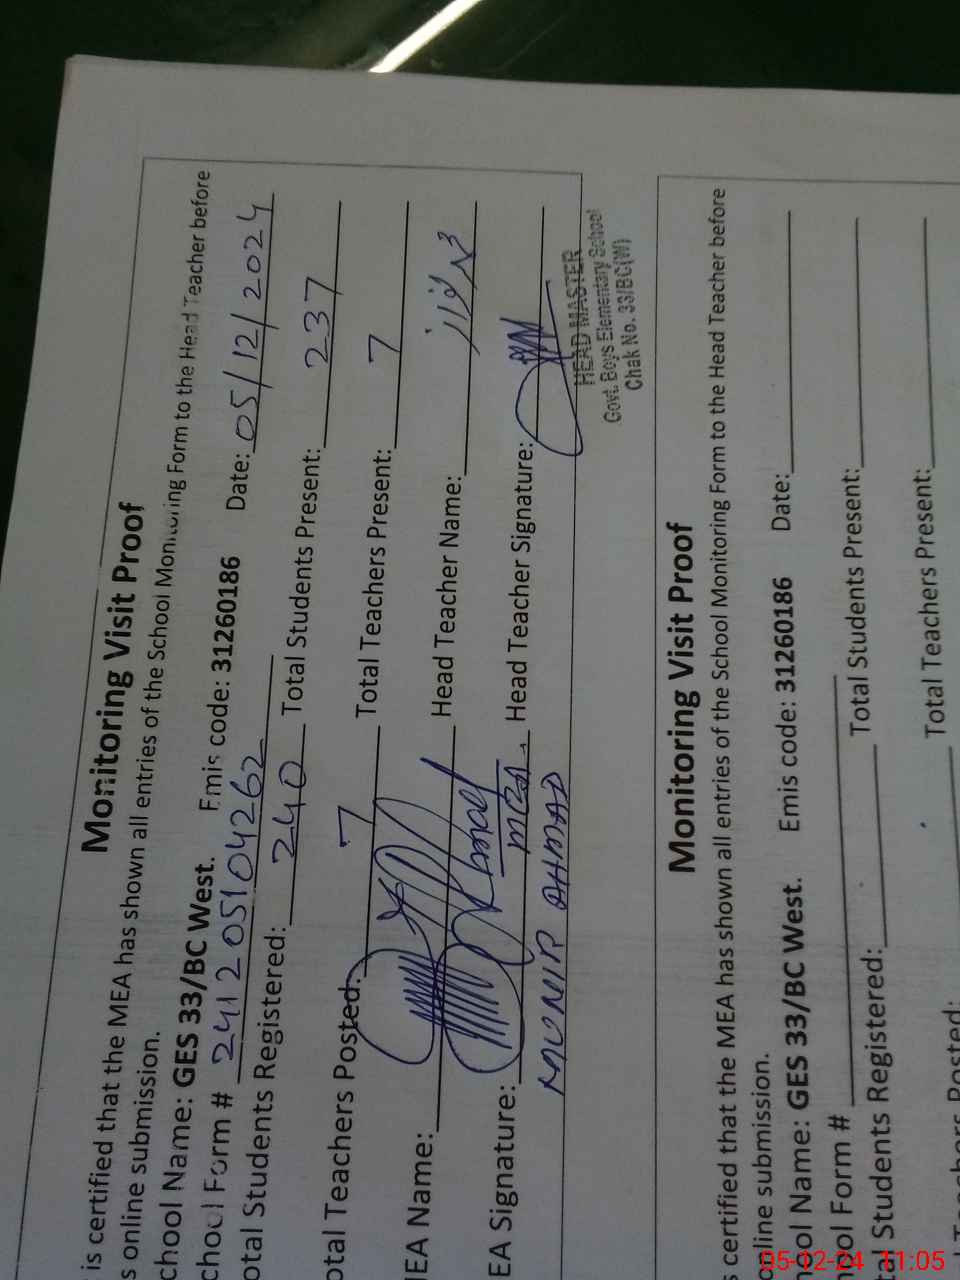 Monitoring Visit Proof
is certified that the MEA has shown all entries of the School Monitoring Form to the Head Teacher before
s online submission.
chool Name: GES 33/BC West. Emis code: 31260186 Date: 05/12/2024
chool Form # 241205104262
otal Students Registered: 240 Total Students Present: 237
otal Teachers Posted: 7 Total Teachers Present: 7
IEA Name: Head Teacher Name:
EA Signature: Head Teacher Signature:
AHMAD
HEAD MASTER
Govt. Boys Elementary School
Chak No. 33/BC(W)
Monitoring Visit Proof
s certified that the MEA has shown all entries of the School Monitoring Form to the Head Teacher before
online submission.
hool Name: GES 33/BC West. Emis code: 31260186 Date:
ool Form #
al Students Registered: Total Students Present:
Teachers Posted: Total Teachers Present:
05-12-24 11:05